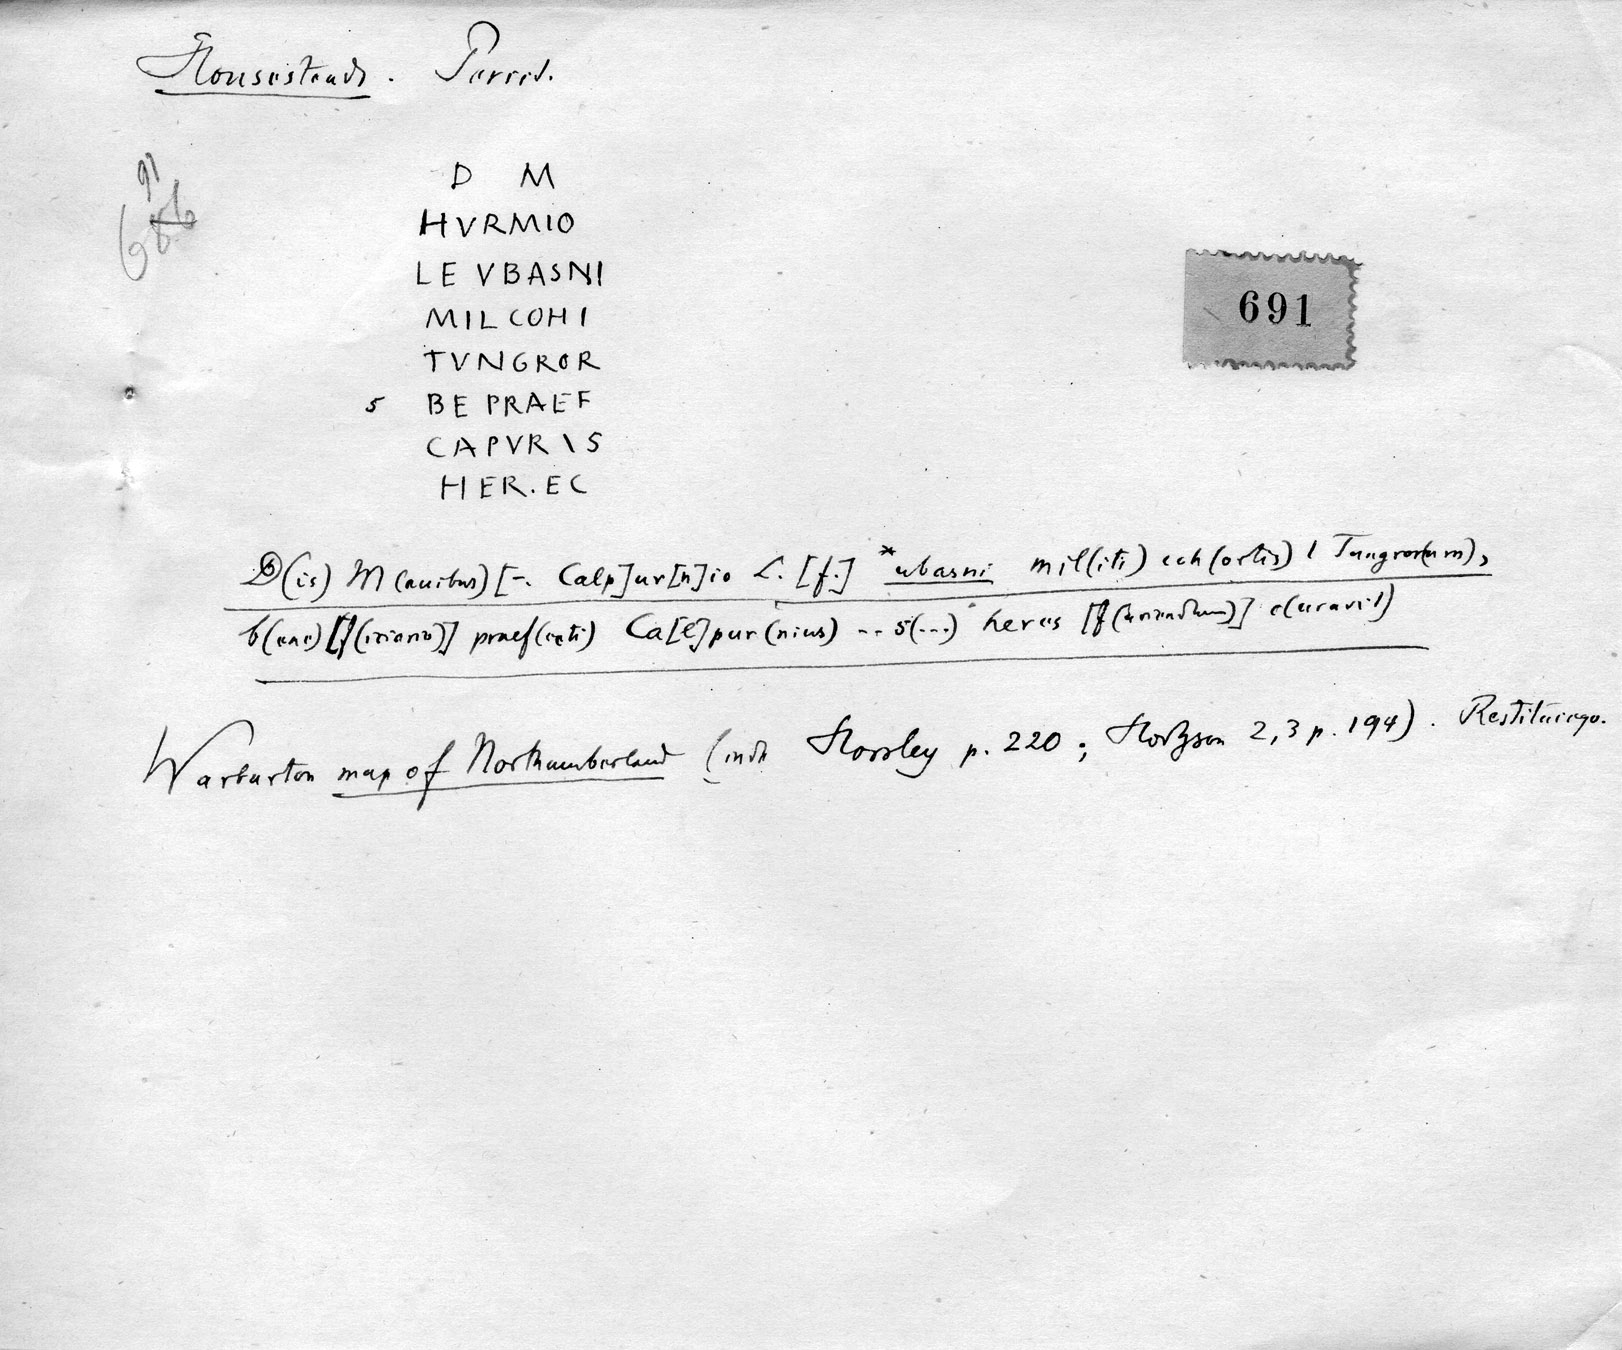 Housesteads. Periit.
91
686
D M
HVRMIO
LE VBASNI
MIL COH I
TVNGROR
5 BE PRAEF
CAPVRIS
HER.EC
691
D(is) M(anibus) [-. Calp]ur[n]io L. [f.] *ubasni mil(iti) coh(ortis) I Tungror(um),
b(ene)[f(iciario)] praef(ecti) Ca[l]pur(nius) -- s(...) heres [f(aciendum)] c(uravit)
Warburton map of Northumberland (inde Horsley p. 220; Hodgson 2,3 p. 194). Restituique.